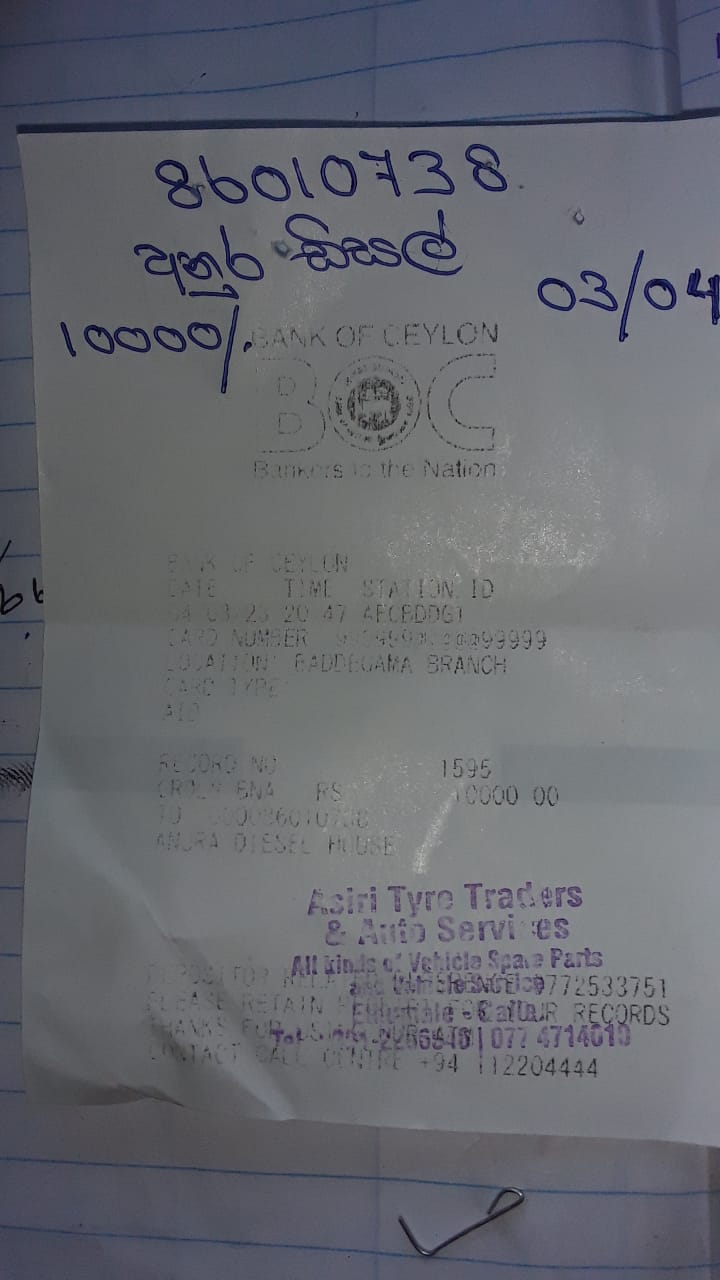 86010738
අනුර ඩීසල්
03/04
10000/.
BANK OF CEYLON
BOC
Bankers to the Nation
BANK OF CEYLON
DATE TIME STATION ID
04 03 23 20 47
CARD NUMBER
LOCATION: BADDEGAMA BRANCH
CARD TYPE
AID
RECORD NO 1595
BNA RS 10000 00
TO 000086010738
ANURA DIESEL HOUSE
Asiri Tyre Traders
& Auto Services
All kinds of Vehicle Spare Parts
and Vehicle
DEPOSITOR 0772533751
PLEASE RETAIN OUR RECORDS
THANKS FOR
077 4714019
CONTACT CALL CENTRE +94 112204444